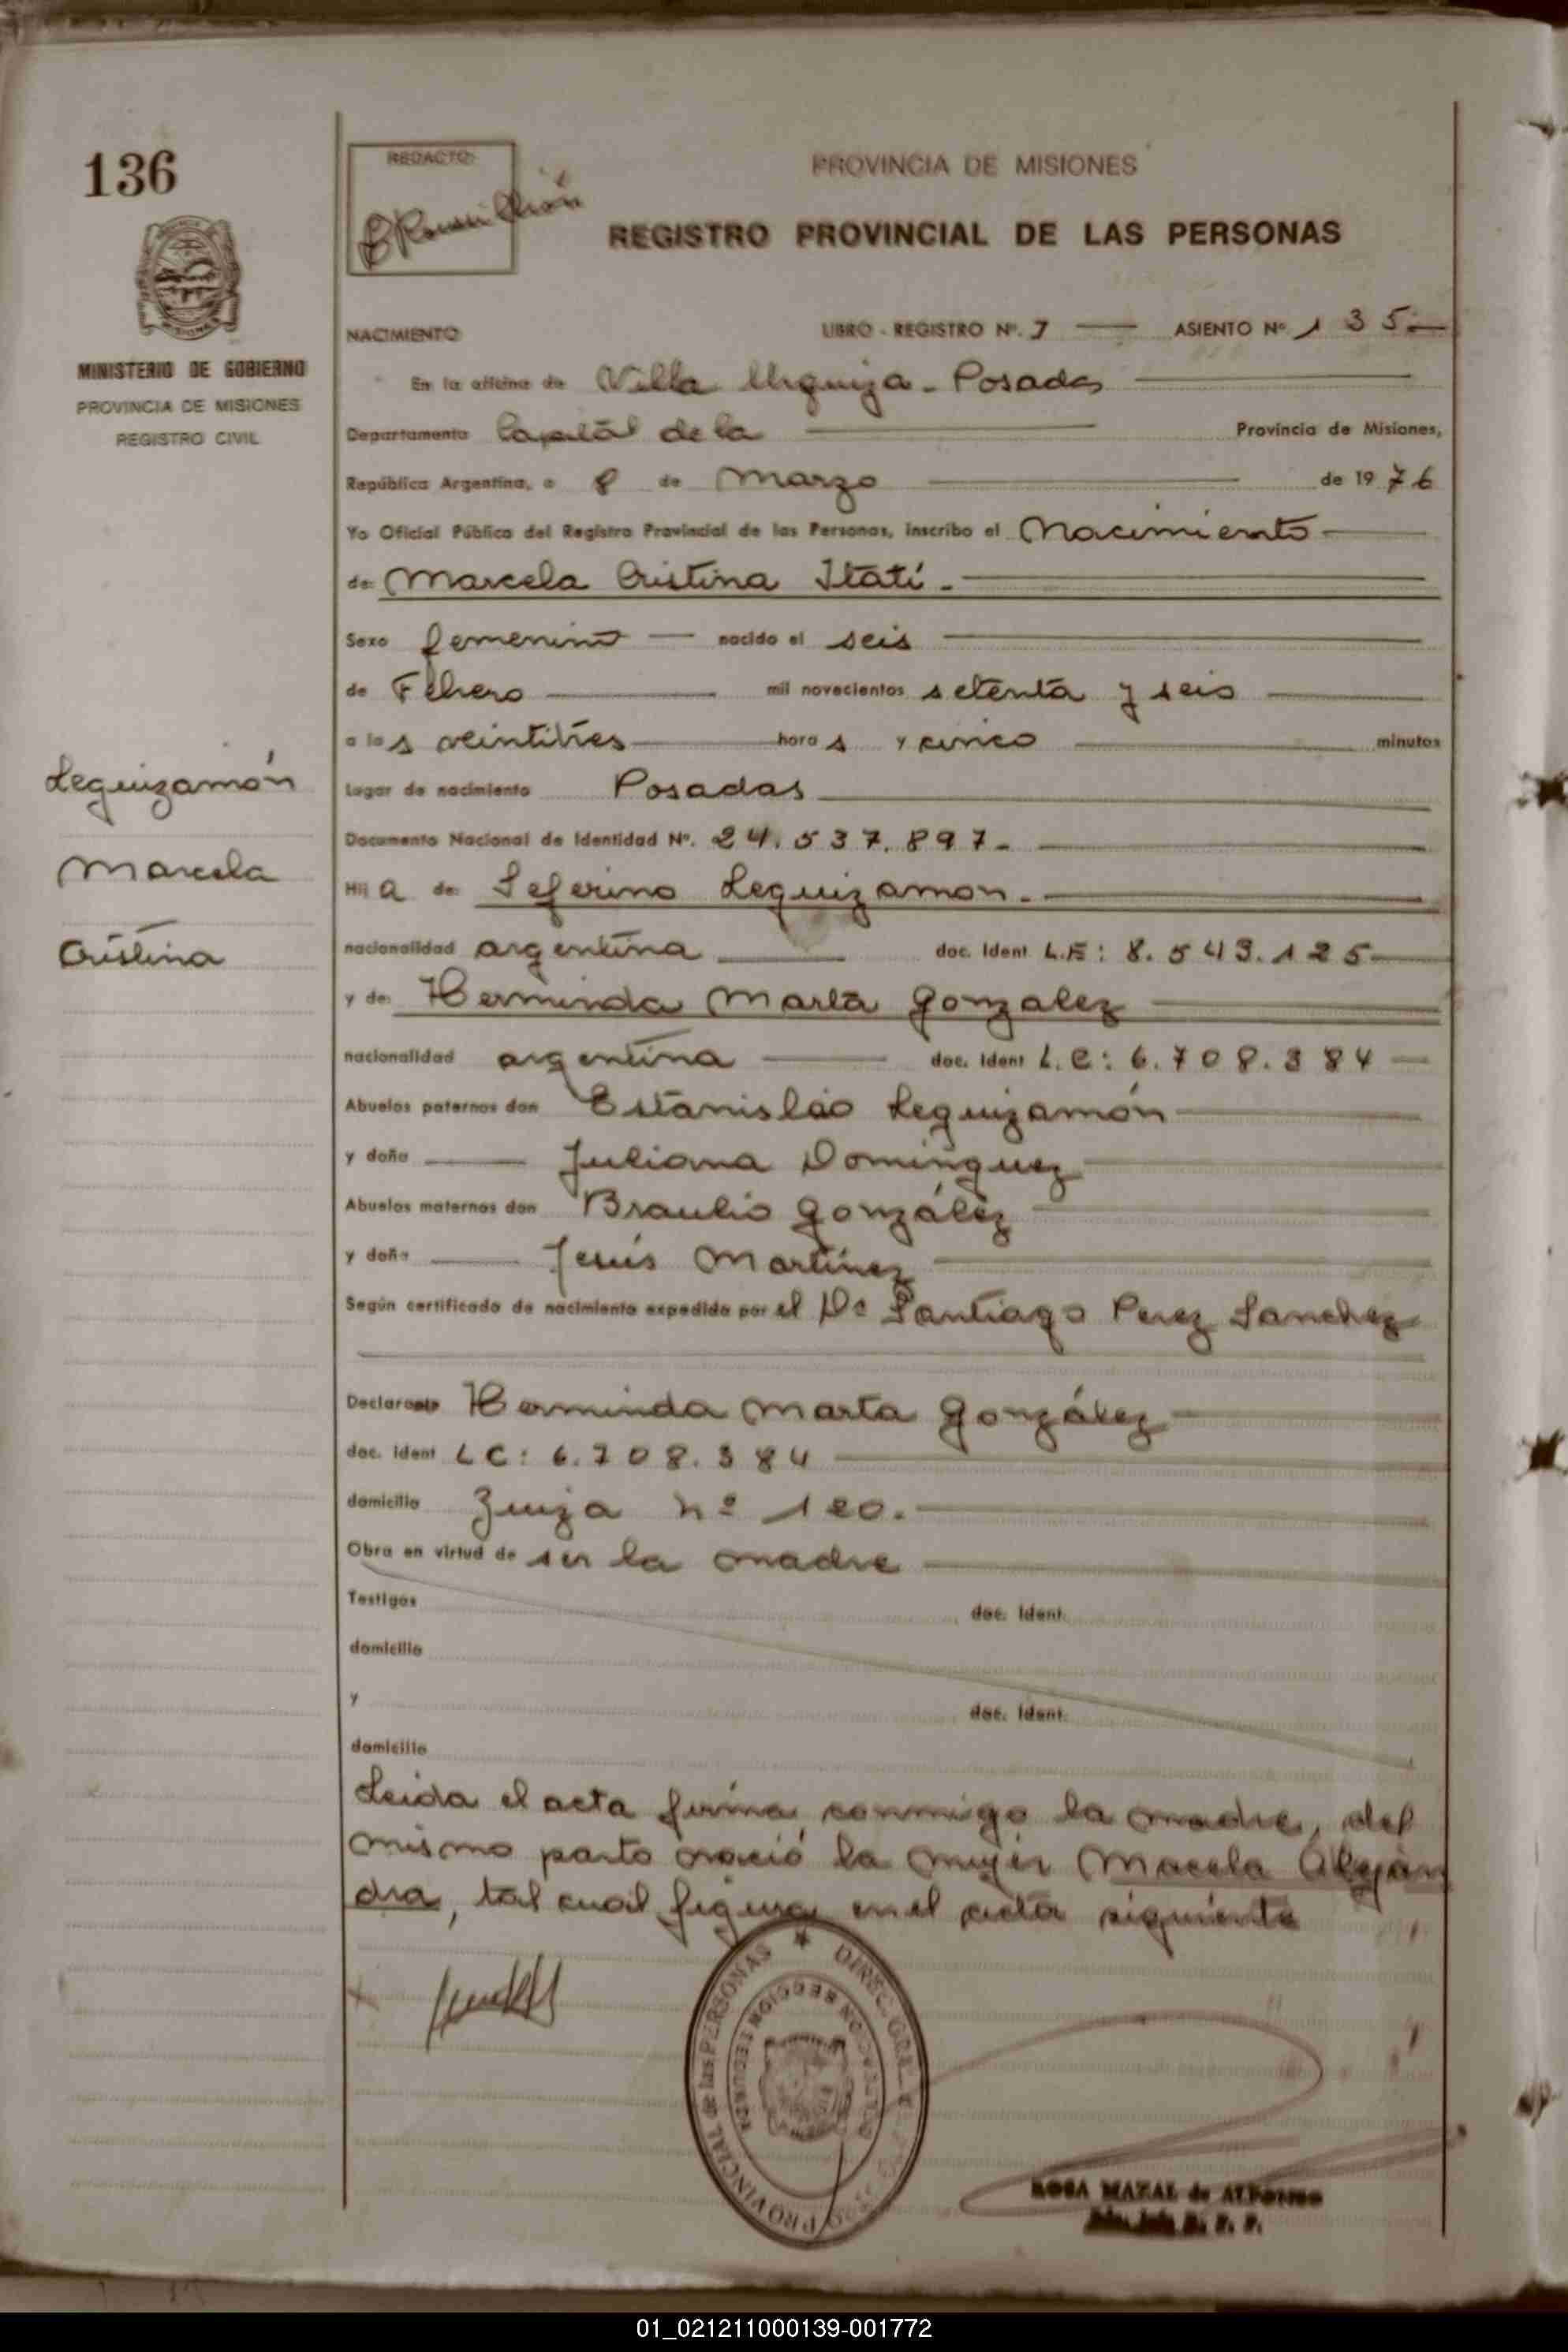 136
REDACTO:
PROVINCIA DE MISIONES
REGISTRO PROVINCIAL DE LAS PERSONAS
MINISTERIO DE GOBIERNO
PROVINCIA DE MISIONES
REGISTRO CIVIL
NACIMIENTO
LIBRO - REGISTRO Nº. 7 ASIENTO Nº 135
En la oficina de Villa Urquiza - Posadas
Departamento Capital de la Provincia de Misiones,
República Argentina, a 8 de Marzo de 1976
Yo Oficial Público del Registro Provincial de las Personas, inscribo el Nacimiento
de: Marcela Cristina Itatí.
Sexo femenino nacido el seis
de Febrero mil novecientos setenta y seis
a las veintitres horas y cinco minutos
Leguizamón
Lugar de nacimiento Posadas
Documento Nacional de Identidad Nº. 24.537.897-
Marcela
Hija de: Seferino Leguizamon.
Cristina
nacionalidad argentina doc. Ident L.E: 8.543.125
y de: Herminda Marta Gonzalez
nacionalidad argentina doc. Ident L.C: 6.708.384
Abuelos paternos don Estanislao Leguizamón
y doña Juliana Dominguez
Abuelos maternos don Braulio González
y doña Jesús Martinez
Según certificado de nacimiento expedido por el Dr Santiago Perez Sanchez
Declarante Herminda Marta González
doc. ident LC: 6.708.384
domicilio nº 120.
Obra en virtud de ser la madre
Testigos doc. Ident.
domicilio
y doc. Ident.
domicilio
Leida el acta firma conmigo la madre, del
mismo parto nació la mujer Macela Alejan
dra, tal cual figura en el acta siguiente
REG. PROVINCIAL de las PERSONAS ★ DIREC. GRAL.
ROSA MAZAL de
01_021211000139-001772